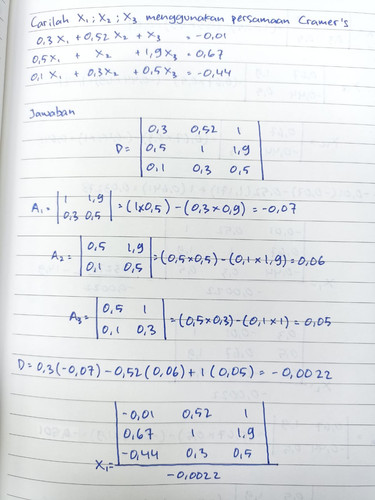 Carilah X₁; X₂; X₃ menggunakan persamaan Cramer's
0,3 X₁ + 0,52 X₂ + X₃ = -0,01
0,5 X₁ + X₂ + 1,9 X₃ = 0,67
0,1 X₁ + 0,3 X₂ + 0,5 X₃ = -0,44
Jawaban
0,3 0,52 1
D = 0,5 1 1,9
0,1 0,3 0,5
A₁ = | 1 1,9 | = (1x0,5) - (0,3x0,9) = -0,07
0,3 0,5
A₂ = | 0,5 1,9 | = (0,5x0,5) - (0,1x1,9) = 0,06
0,1 0,5
A₃ = | 0,5 1 | = (0,5x0,3) - (0,1x1) = 0,05
0,1 0,3
D = 0,3 (-0,07) - 0,52 (0,06) + 1 (0,05) = -0,0022
-0,01 0,52 1
0,67 1 1,9
-0,44 0,3 0,5
X₁ =
-0,0022